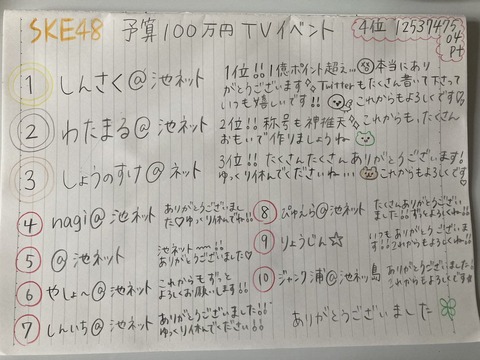 SKE48 予算100万円TVイベント
4位 12537475
04
Pt
1 しんさく@池ネット
1位!!1億ポイント超え…本当にあり
がとうございます♡Twitterもたくさん書いて下さって
いつも嬉しいです!! これからもよろしくです♡
2 わたまる@池ネット
2位!!称号も神推天☆これからも、たくさん
おもいで作りましょうね
3 しょうのすけ@ネット
3位!!たくさんたくさんありがとうございます!
ゆっくり休んでくださいねぃぃ これからもよろしくです♡
4 nagi@池ネット
ありがとうございまし
た♡ゆっくり休んでね!!
5 @池ネット
池ネット〰!!
ありがとうございました♡
6 やしょ〜@池ネット
これからもずっと
よろしくお願いします!!
7 しんいち@池ネット
ありがとうございました!!
ゆっくり休んでください!!
8 ぴゅえら@池ネット
たくさんありがとうござい
ました!!ずっとよろしくね!!
9 りょうじん☆
いつもありがとうございま
す!!これからもよろしくです
10 ジャンク浦@池ネッ島
ありがとうございました!!
これからもよろしくです
ありがとうございました